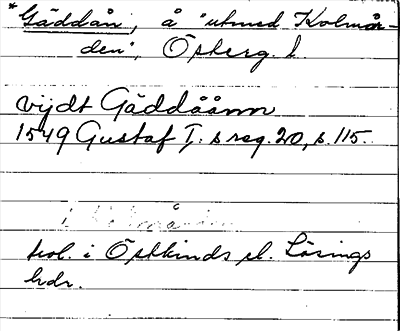 *Gäddån, å "utmed Kolmår-
den", Österg. l.
vijdt Gäddåånn
1549 Gustaf I:s reg. 20, s. 115.
i Kolmården
trol. i Östkinds el. Lösings
hdr.